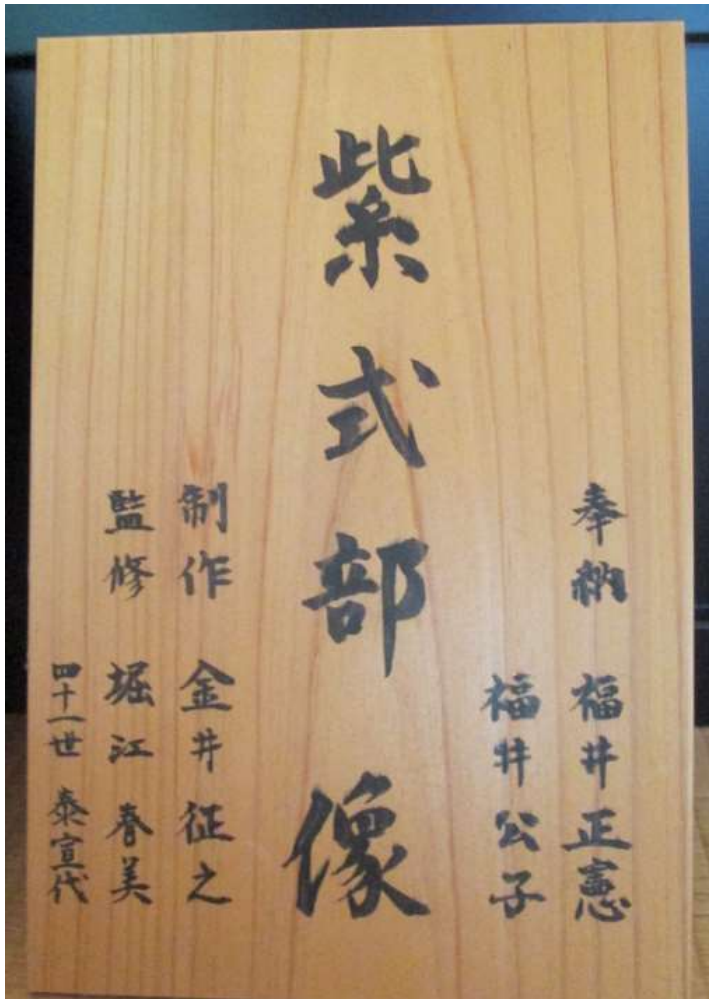 奉納 福井正憲
福井公子
紫式部像
制作 金井征之
監修 堀江春美
四十一世 泰宣代